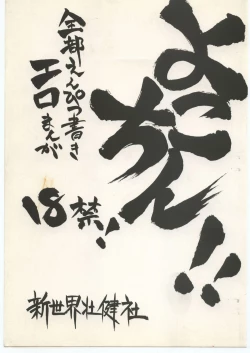 よこちん!!
全部えんぴつ書き
エロまんが
18禁!!
新世界壮健社